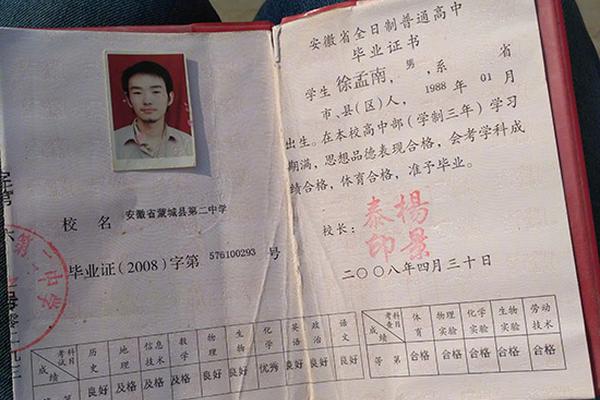 校名 安徽省蒙城县第二中学
毕业证(2008)字第 576100293 号
考试科目 成绩 历史 地理 信息技术 数学 物理 生物 化学 英语 政治 语文
良好 及格 及格 及格 良好 良好 优秀 良好 良好 良好
安徽省全日制普通高中
毕业证书
学生 徐孟南，男，系 省
市、县(区)人，1988 年 01 月
出生。在本校高中部(学制三年)学习
期满，思想品德表现合格，会考学科成
绩合格，体育合格，准予毕业。
校长：
楊景
泰印
二〇〇八年四月三十日
考查科目 成绩 体育 物理实验 化学实验 生物实验 劳动技术
等第 合格 合格 合格 合格 合格